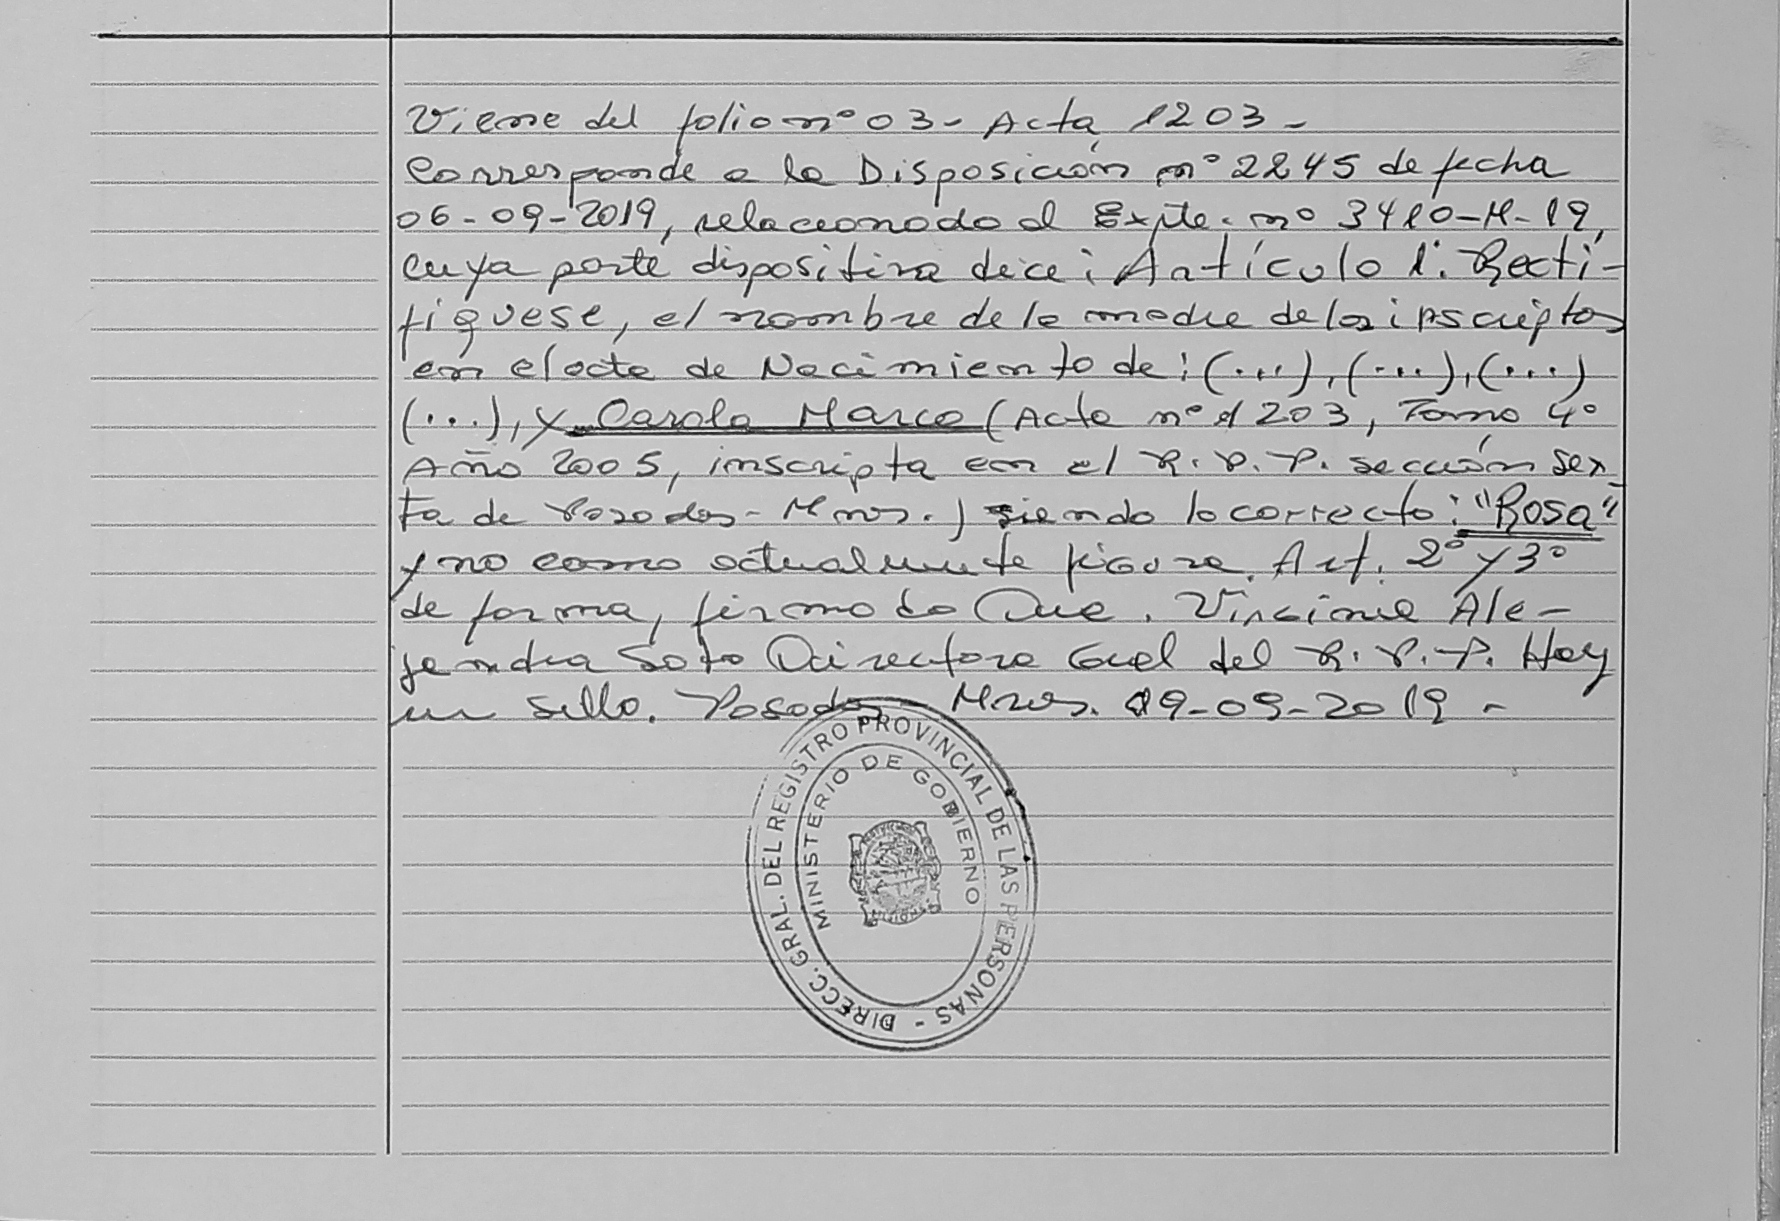 Viene del folio nº 03- Acta 1203 -
Corresponde a la Disposición nº 2245 de fecha
06-09-2019, relacionado al Expte. nº 3410-M-19,
cuya parte dispositiva dice: Artículo 1º. Recti-
fíquese, el nombre de la madre de los inscriptos
en el acta de Nacimiento de: (...), (...), (...)
(...), y Carola Marco (Acta nº 1203, Tomo 4º
Año 2005, inscripta en el R.P.P. sección Sex-
ta de Posadas- Mnes.) siendo lo correcto: "Rosa"
y no como actualmente figura. Art. 2º y 3º
de forma, firmado Dra. Viviana Ale-
jandra Soto Directora Gral del R.P.P. Hay
un sello. Posadas Mnes. 19-09-2019 -
DIRECC. GRAL. DEL REGISTRO PROVINCIAL DE LAS PERSONAS -
MINISTERIO DE GOBIERNO